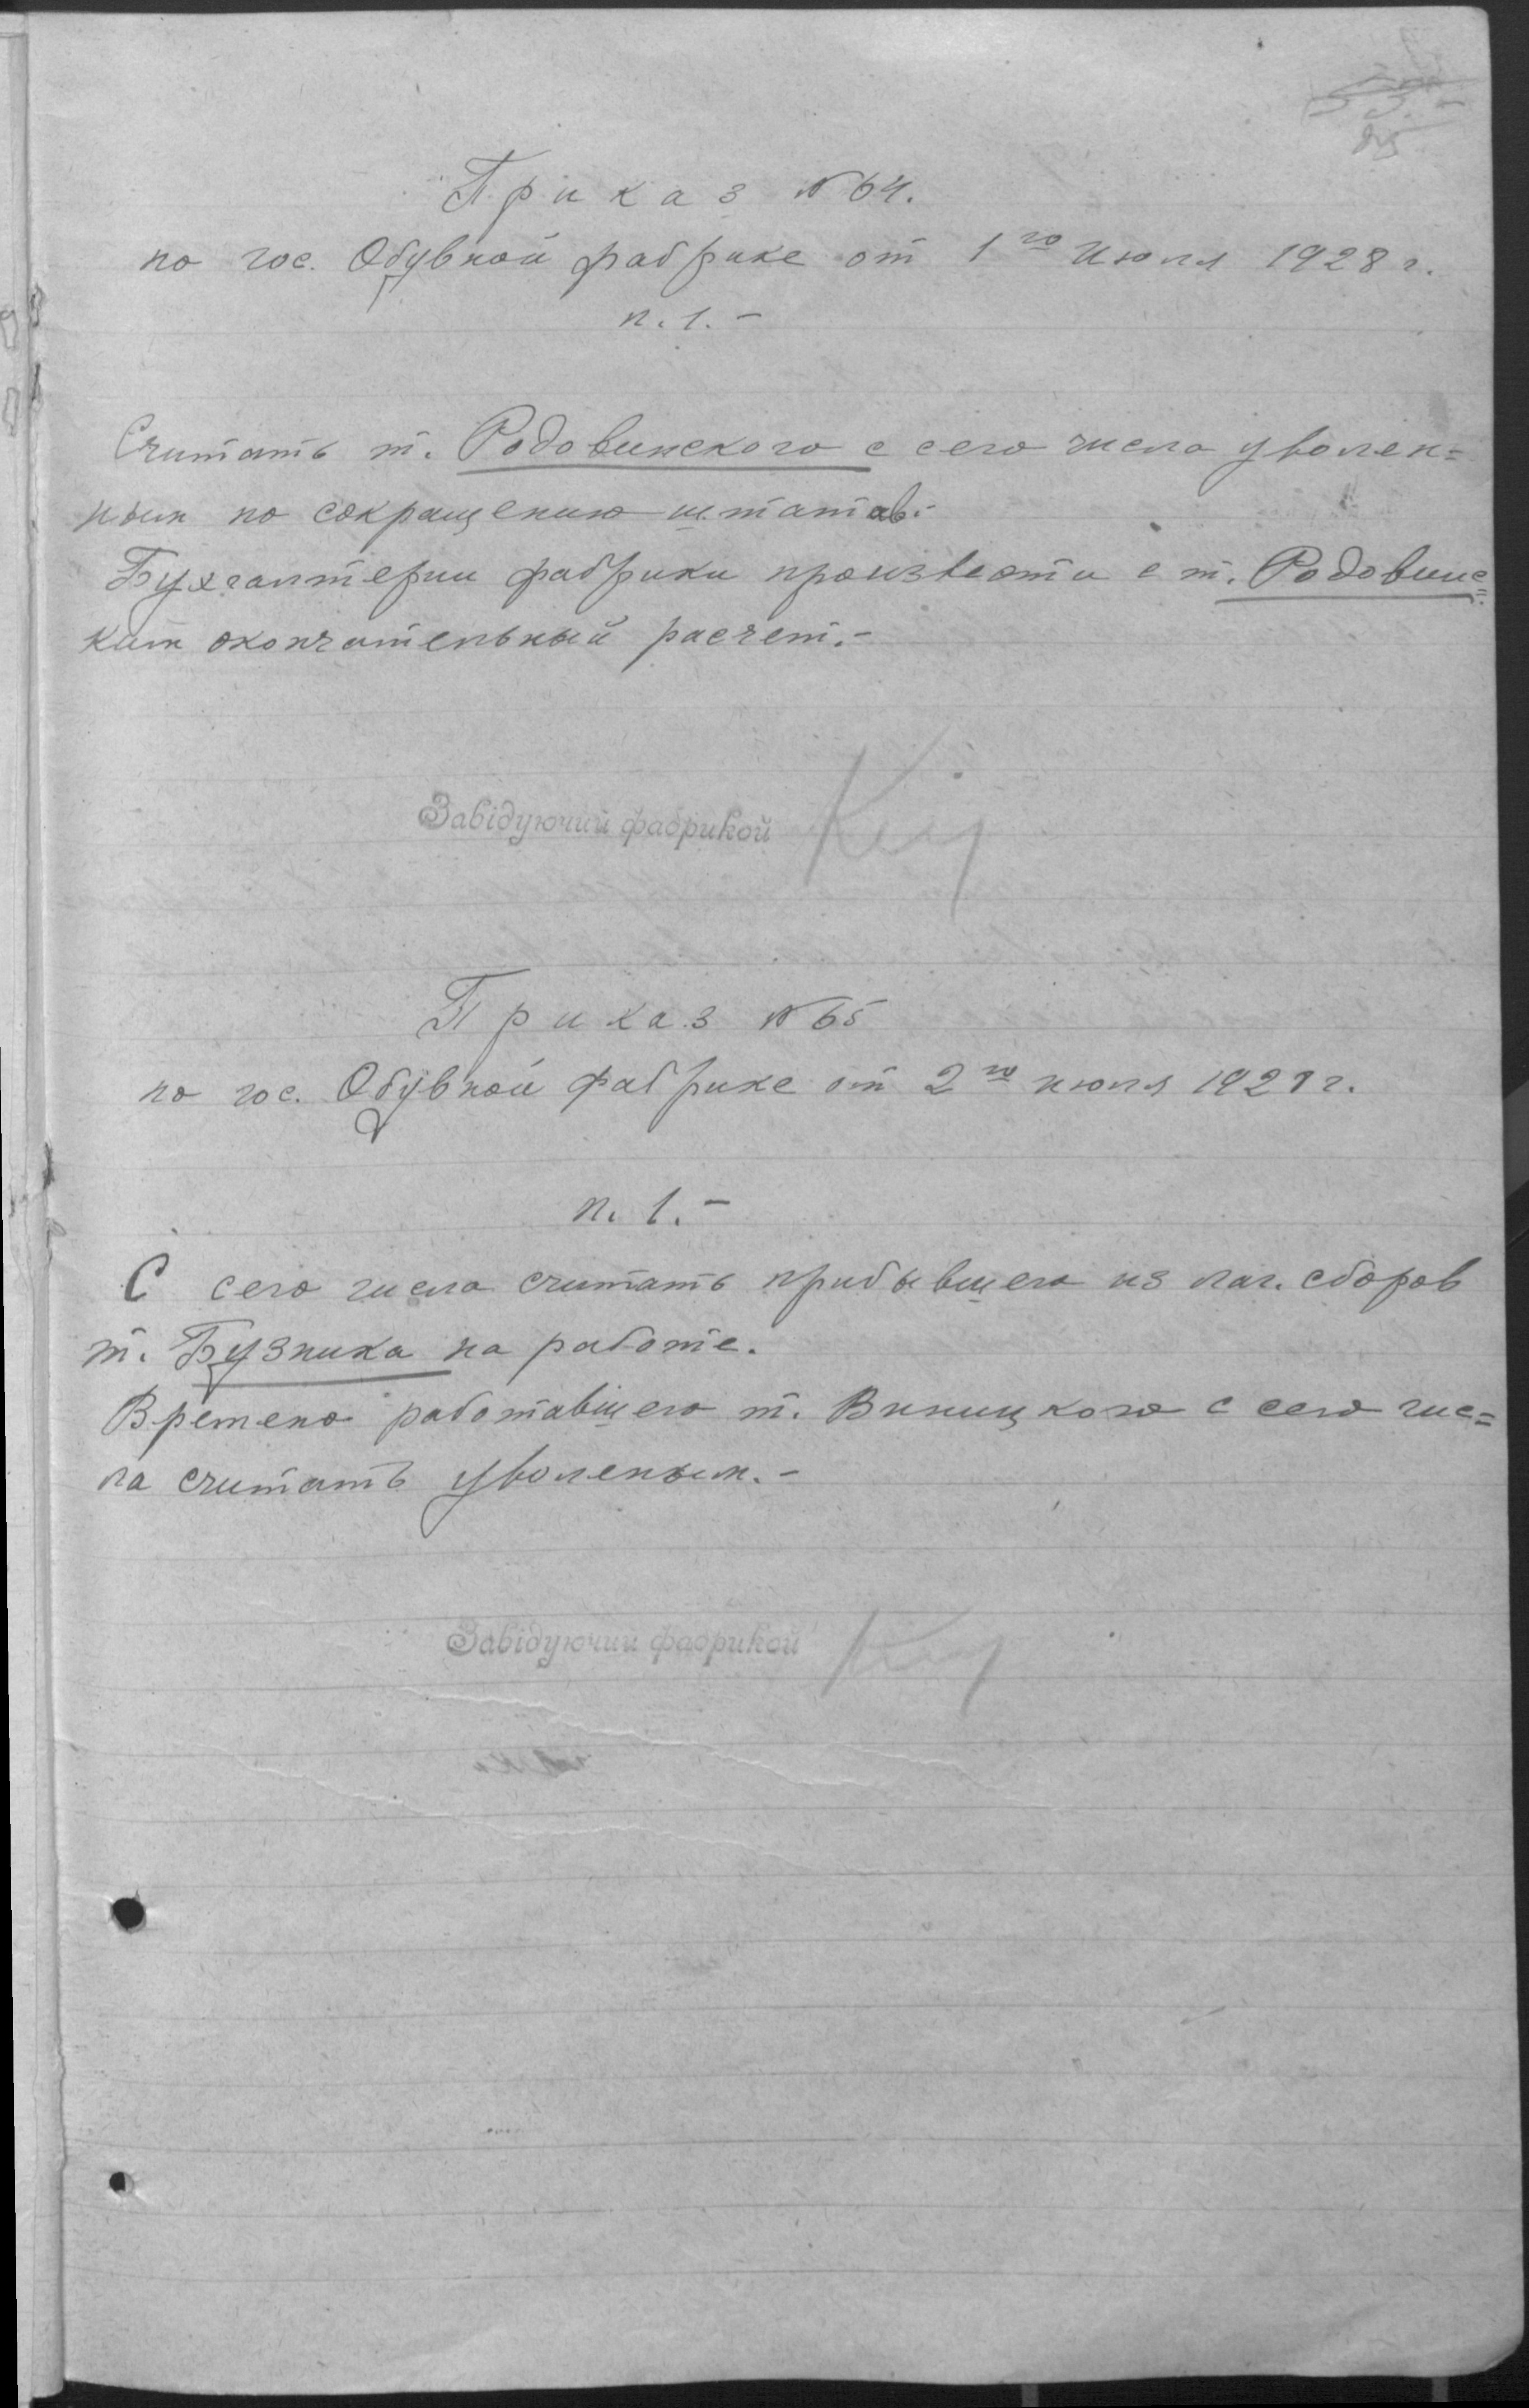 Приказ №64.
по гос. Обувной фабрике от 1го Июля 1928 г.
п. 1. –
Считать т. Родовинского с сего числа уволен=
ным по сокращению штатов.-
Бухгалтерии фабрики произвести с т. Родовинс=
ким окончательный расчет.-
Завідуючий фабрикой
Приказ №65
по гос. Обувной фабрике от 2го июля 1928 г.
п. 1. –
С сего числа считать прибывшего из лаг. сборов
т. Бузника на работе.
Времено работавшего т. Виницкого с сего чис=
ла считать уволеным. –
Завідуючий фабрикой